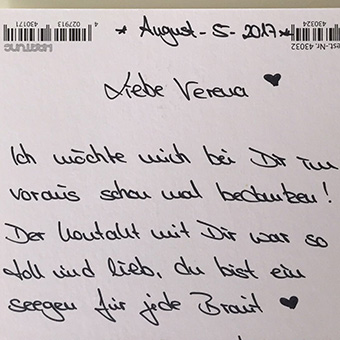 430171
4 027913
* August - 5 - 2017 *
430324
est-Nr. 43032
Liebe Verena ♥
Ich möchte mich bei Dir im
voraus schon mal bedanken!
Der Kontakt mit Dir war so
toll und lieb, du bist ein
seegen für jede Braut ♥